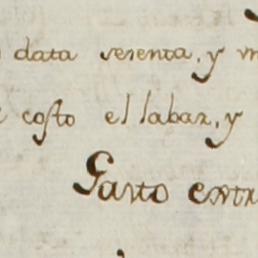 data serenta, y
costo el labar, y
Gasto